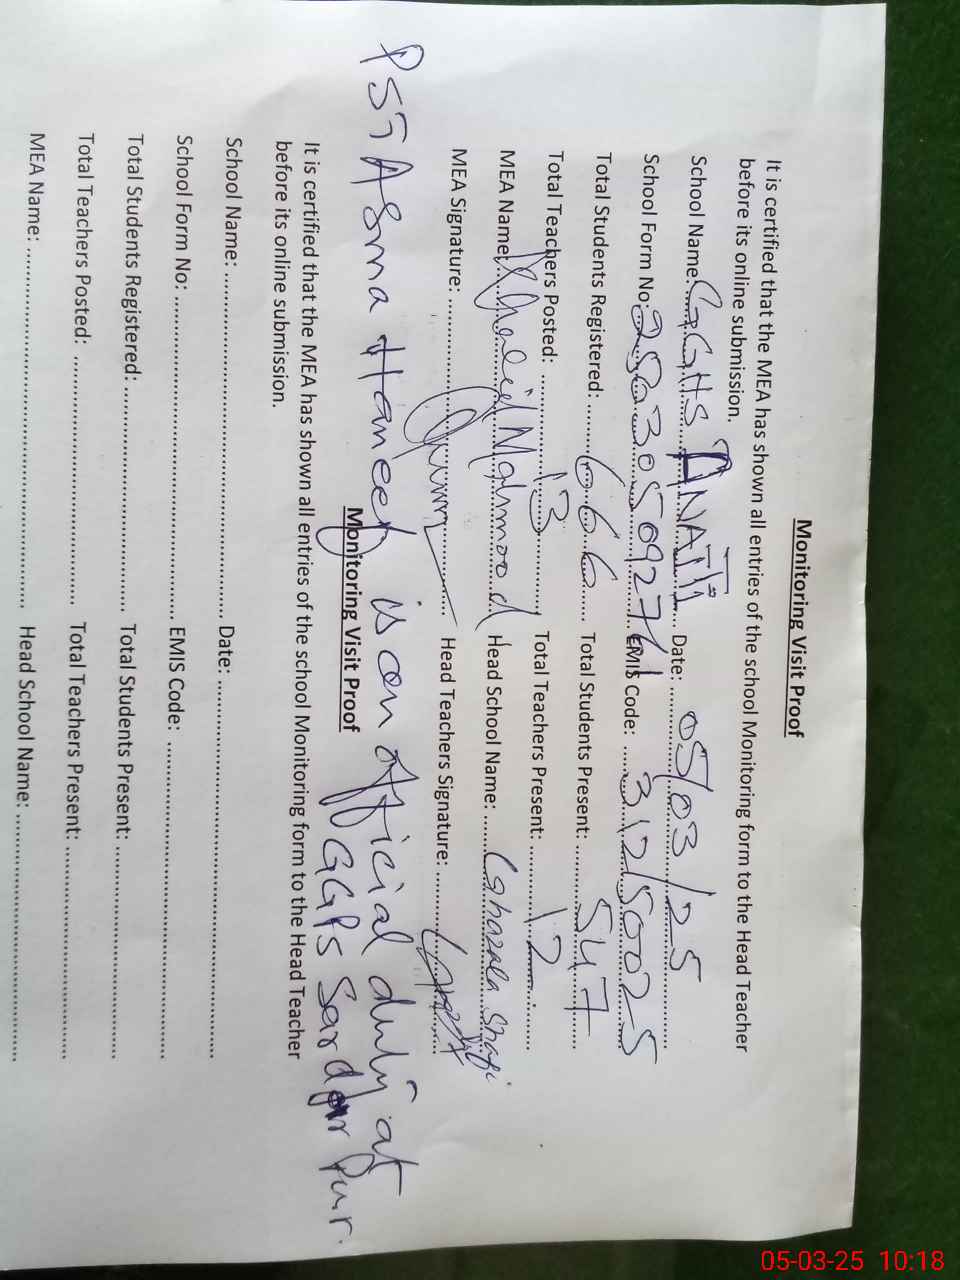 Monitoring Visit Proof
It is certified that the MEA has shown all entries of the school Monitoring form to the Head Teacher
before its online submission.
School Name: GGHS ANATTI Date: 05/03/25
School Form No: EMIS Code: 31215002-5
Total Students Registered: 666 Total Students Present: 547
Total Teachers Posted: 13 Total Teachers Present: 12
MEA Name: Khalid Mahmood Head School Name: Ghazala Shafi
MEA Signature: Head Teachers Signature:
PST Asma Haneef is on official duty at
GGPS Sardar Pur
Monitoring Visit Proof
It is certified that the MEA has shown all entries of the school Monitoring form to the Head Teacher
before its online submission.
School Name: Date:
School Form No: EMIS Code:
Total Students Registered: Total Students Present:
Total Teachers Posted: Total Teachers Present:
MEA Name: Head School Name:
05-03-25 10:18